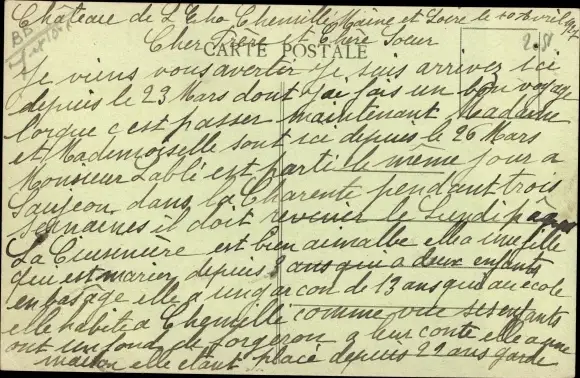 Château de L'Echo Chemillé Maine et Loire le 10 Avril 1927
Cher Frère et Chère Soeur
CARTE POSTALE
Je viens vous avertir Je suis arrivez ici
depuis le 23 Mars dont j'ai fais un bon voyage
lorque c est passer maintenant Madame
et Mademoiselle sont ici depuis le 26 Mars
Monsieur Lablé est parti le même jour a
Saujeon dans la Charente pendant trois
semaines il doit revenir le Lundi pâques
La Cuisinière est bien aimalbe elle a une fille
qui est marier depuis 2 ans qui a deux enfants
en bas âge elle a un garcon de 13 ans qui au ecole
elle habite a Chemillé comme ses enfants
ont un fond de forgeron a leur conte elle a une
maison elle etant place depuis 21 ans garde